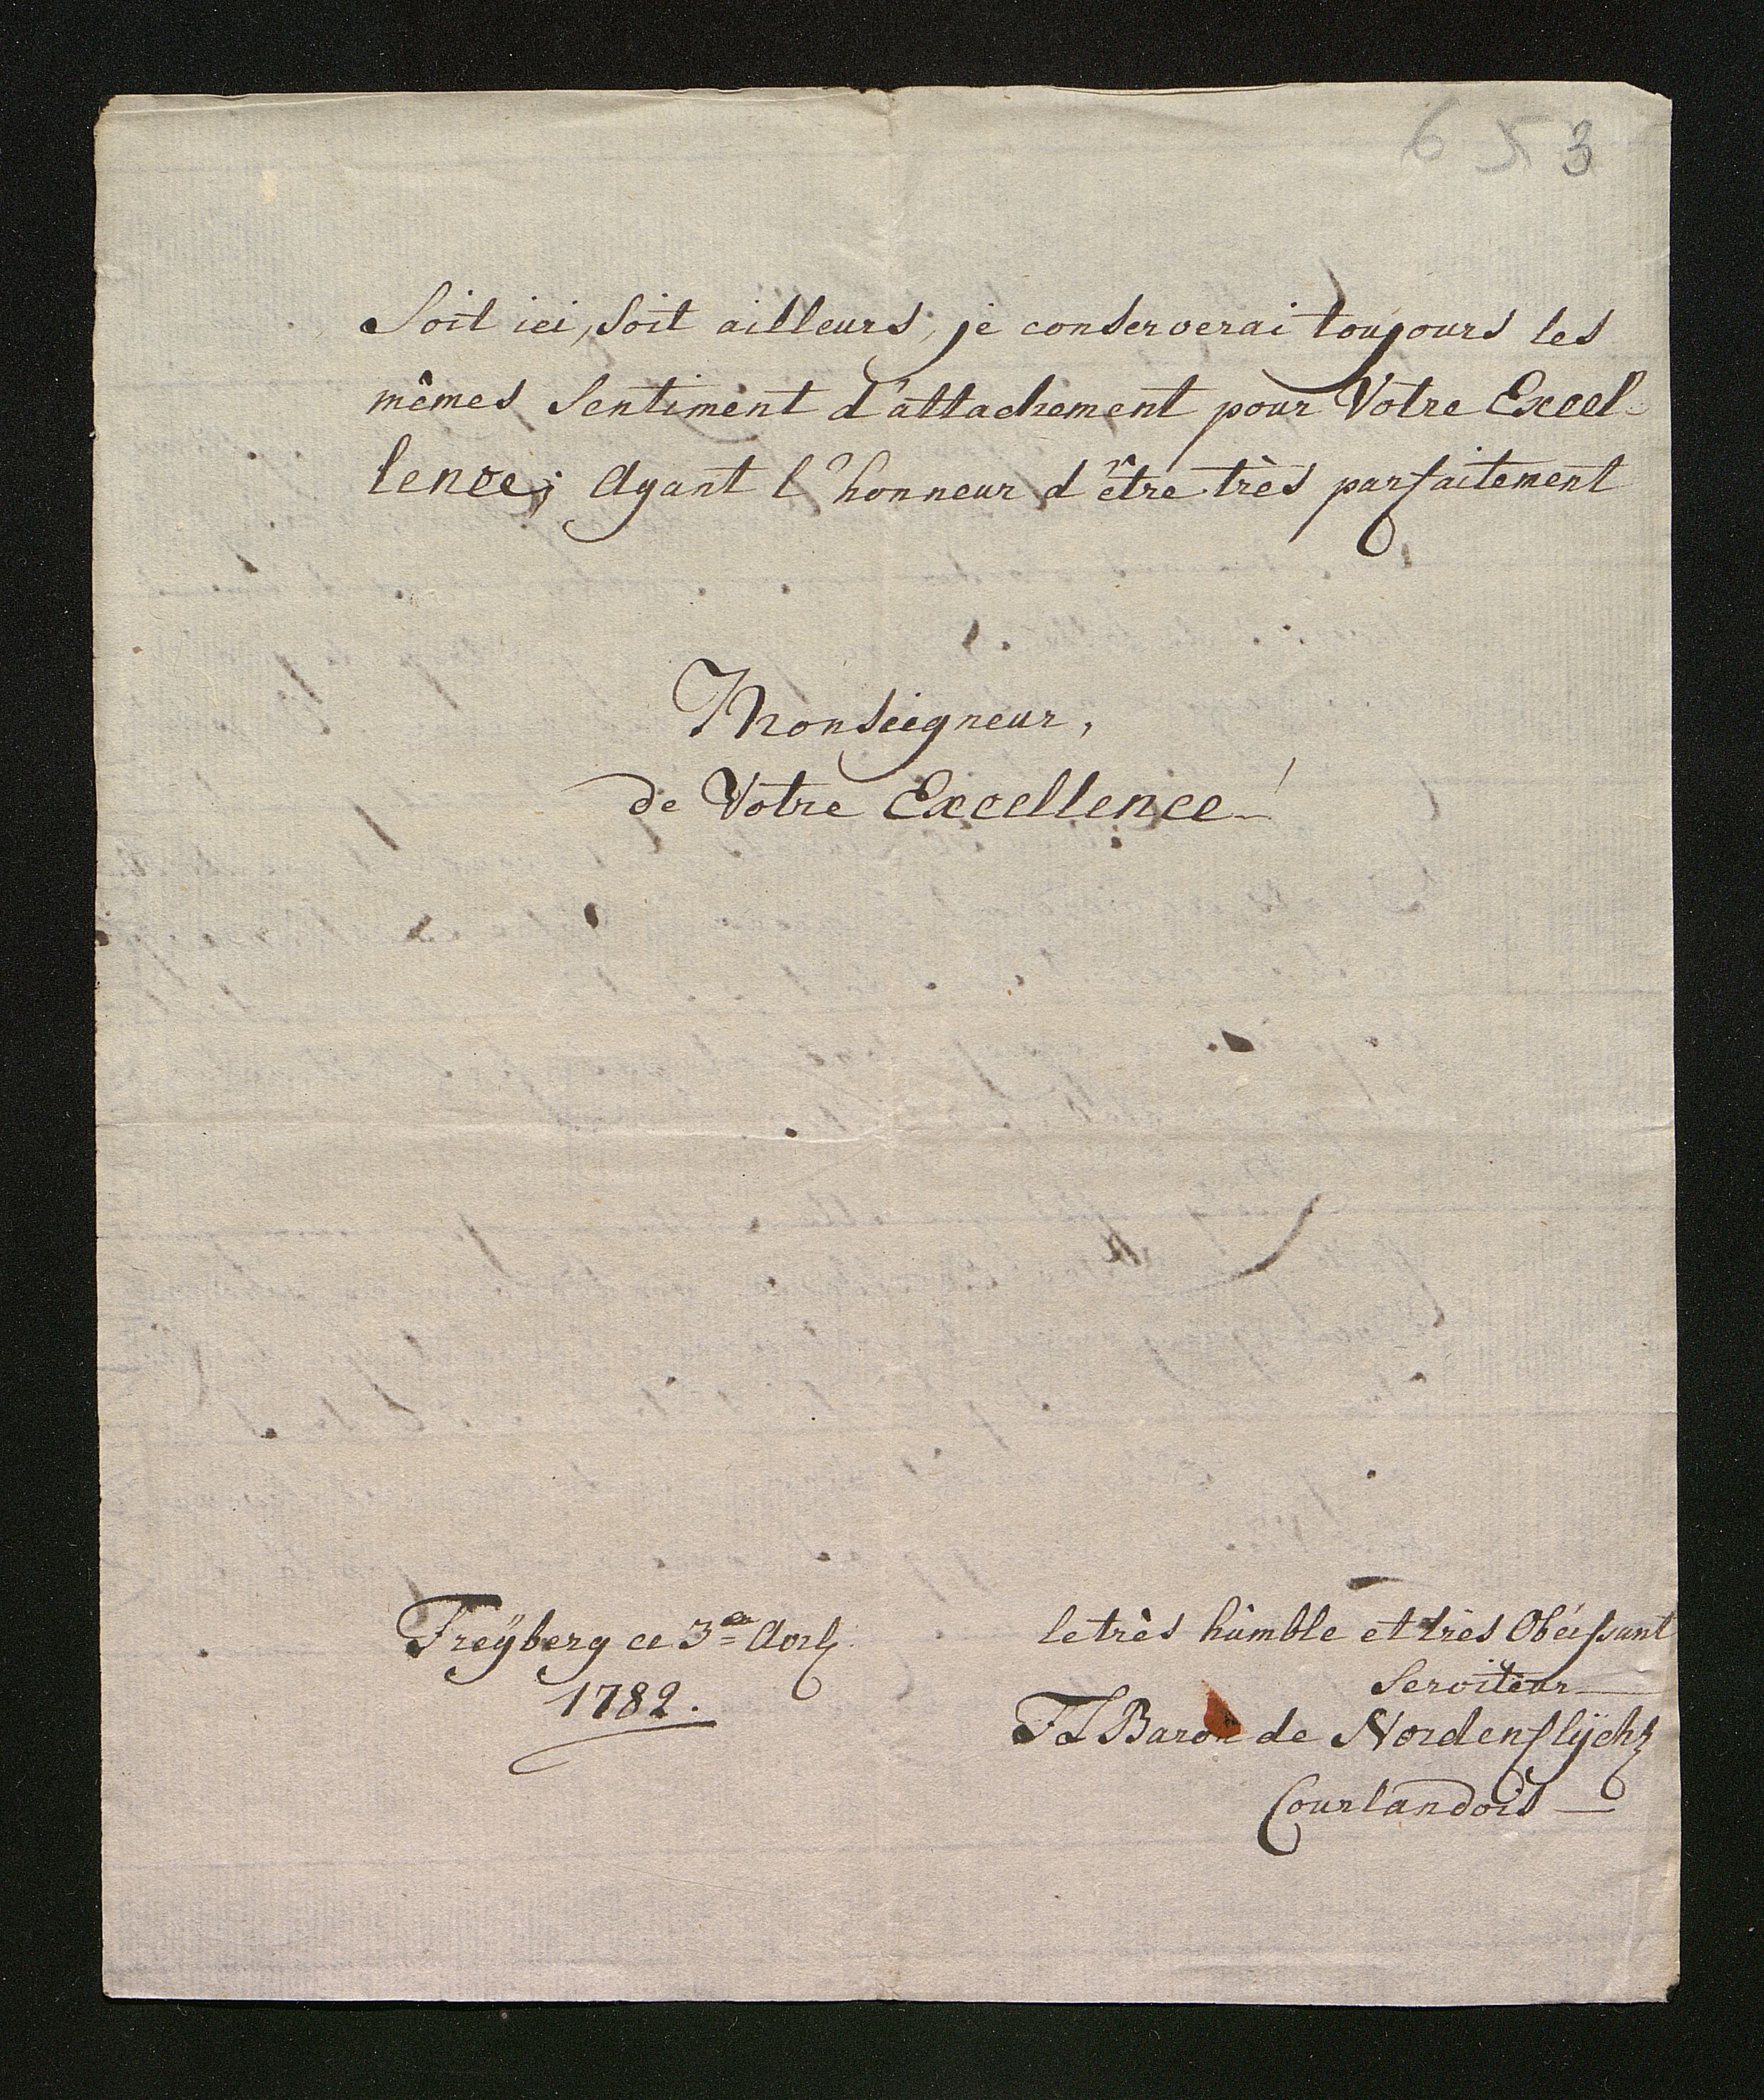 653
Soit ici, soit ailleurs, je conserverai toujours les
mêmes sentiment d'attachement pour Votre Excel-
lence; Ayant l'honneur d'être très parfaitement
Monseigneur,
de Votre Excellence
Freÿberg ce 3 Avrl
1782.
le très humble et très Obéissant
Serviteur
Baron de Nordenflÿcht
Courlandois